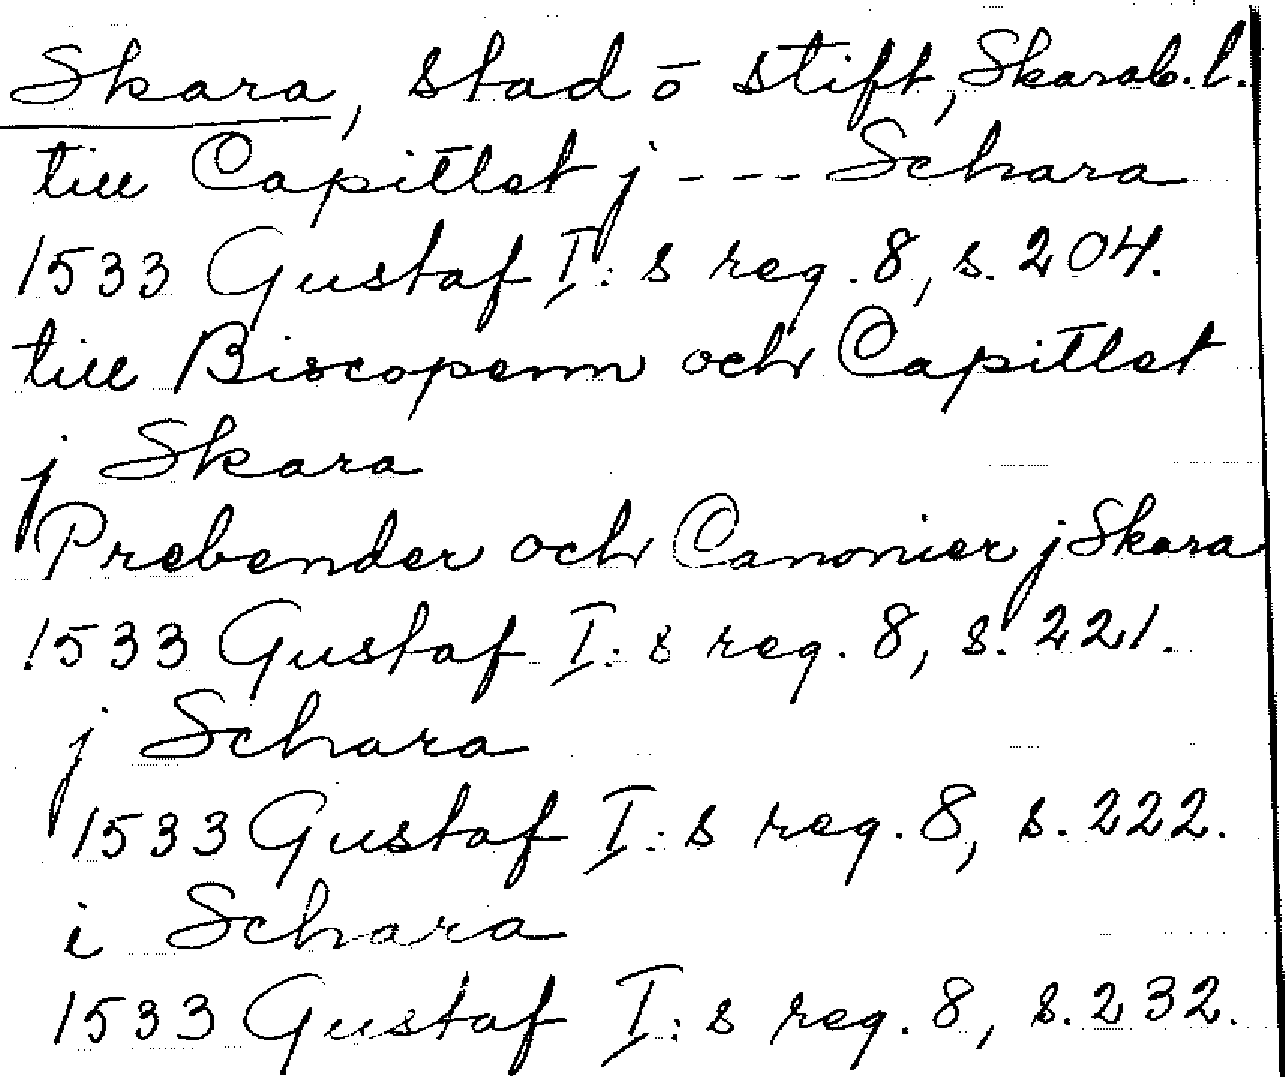 Skara, stad o stift, Skarab. l.
till Capitlet j - - - Schara
1533 Gustaf I: s reg. 8, s. 204.
till Biscopenn och Capitlet
j Skara
Prebender och Canonier j Skara
1533 Gustaf I: s reg. 8, s. 221.
j Schara
1533 Gustaf I: s reg. 8, s. 222.
i Schara
1533 Gustaf I: s reg. 8, s. 232.